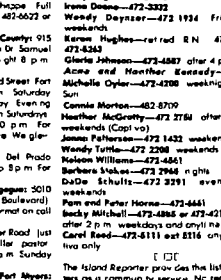 hhappe Full
482-6622 or
County: 915
Dr Samuel
ght 8 p m
d Street Fort
m Saturday
y Evening
n Saturdays
0 p m For
re We gler-
Del Prado
p m For
eague: 5010
Boulevard)
rmat on call
or Road Just
llar pastor
a m Sunday
Fort Myers:
Irene Doane—472-3332
Wendy Doynzer—472 1934 Fr
weekends
Karen Hughes—ret red R N 47
472-6263
Gloria Johnson—472-4587 after 4 p
Acme and Heather Kennedy—
Michelle Oyler—472-4208 weeknig
Sun
Connie Morton—482-8709
Heather McGrotty—472 after
weekends (Captiva)
Jenna Patterson—472 1432 weeken
Wendy Tuttle—472 2208 weekends
Nelson Williams—472-4561
Barbara Stokes—472 2964 nights
DeDe Schultz—472 3291 even
weekends
Pam and Peter Horne—472-6661
Becky Mitchell—472-4885 or 472-42
after 2 p m weekdays and anyti me
Carol Reed—472-5111 ext 5216 an
tiva only
The Island Reporter prov des the
ters as a commun ty service No re